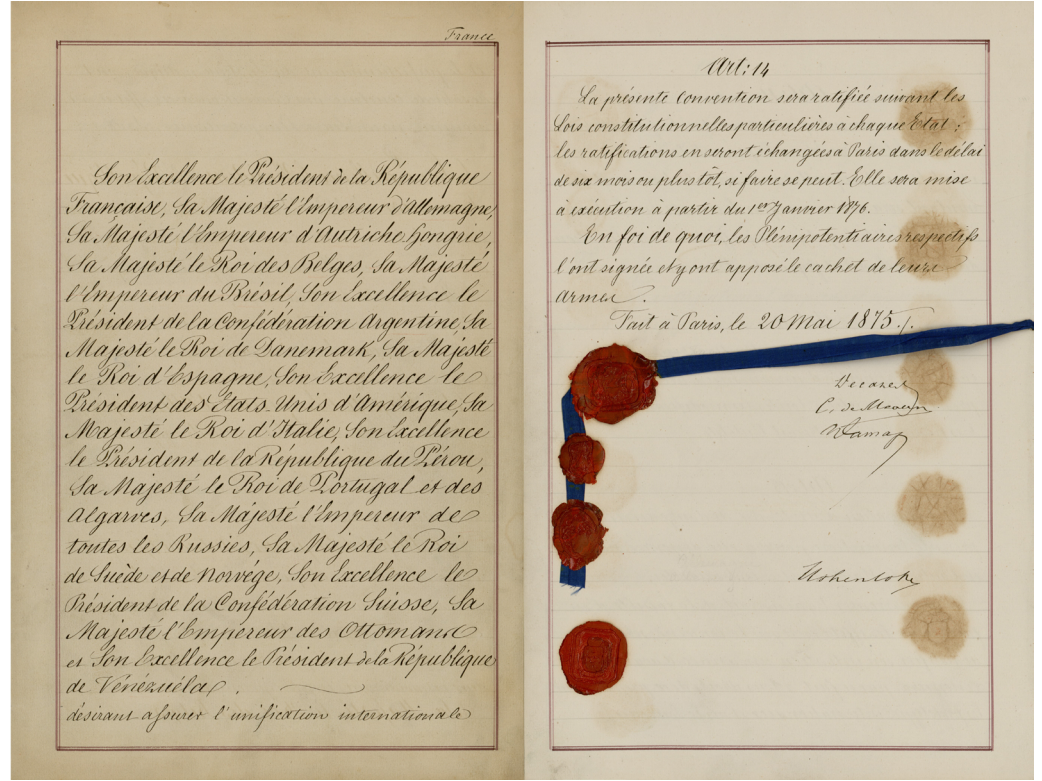 France
Son Excellence le Président de la République
Française, Sa Majesté l'Empereur d'Allemagne,
Sa Majesté l'Empereur d'Autriche Hongrie,
Sa Majesté le Roi des Belges, Sa Majesté
l'Empereur du Brésil, Son Excellence le
Président de la Confédération Argentine, Sa
Majesté le Roi de Danemark, Sa Majesté
le Roi d'Espagne, Son Excellence le
Président des Etats Unis d'Amérique, Sa
Majesté le Roi d'Italie, Son Excellence
le Président de la République du Pérou,
Sa Majesté le Roi de Portugal et des
Algarves, Sa Majesté l'Empereur de
toutes les Russies, Sa Majesté le Roi
de Suède et de Norvége, Son Excellence le
Président de la Confédération Suisse, Sa
Majesté l'Empereur des Ottomans
et Son Excellence le Président de la République
de Vénézuéla.
désirant assurer l'unification internationale
Art: 14
La présente Convention sera ratifiée suivant les
Lois constitutionnelles particulières à chaque Etat;
les ratifications en seront échangées à Paris dans le délai
de six mois ou plus tôt, si faire se peut. Elle sera mise
à exécution à partir du 1er Janvier 1876.
En foi de quoi, les Plénipotentiaires respectifs
l'ont signée et y ont apposé le cachet de leurs
armes.
Fait à Paris, le 20 Mai 1875./.
Decazes
C. de Meaux
Hohenlohe